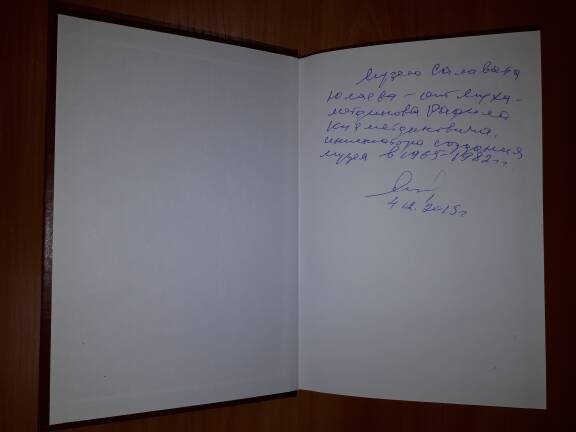 Музею Салавата
Юлаева – от Муха-
метдинова Рафила
Киметдиновича,
инициатора создания
музея в 1965-1982гг
4.12.2015г